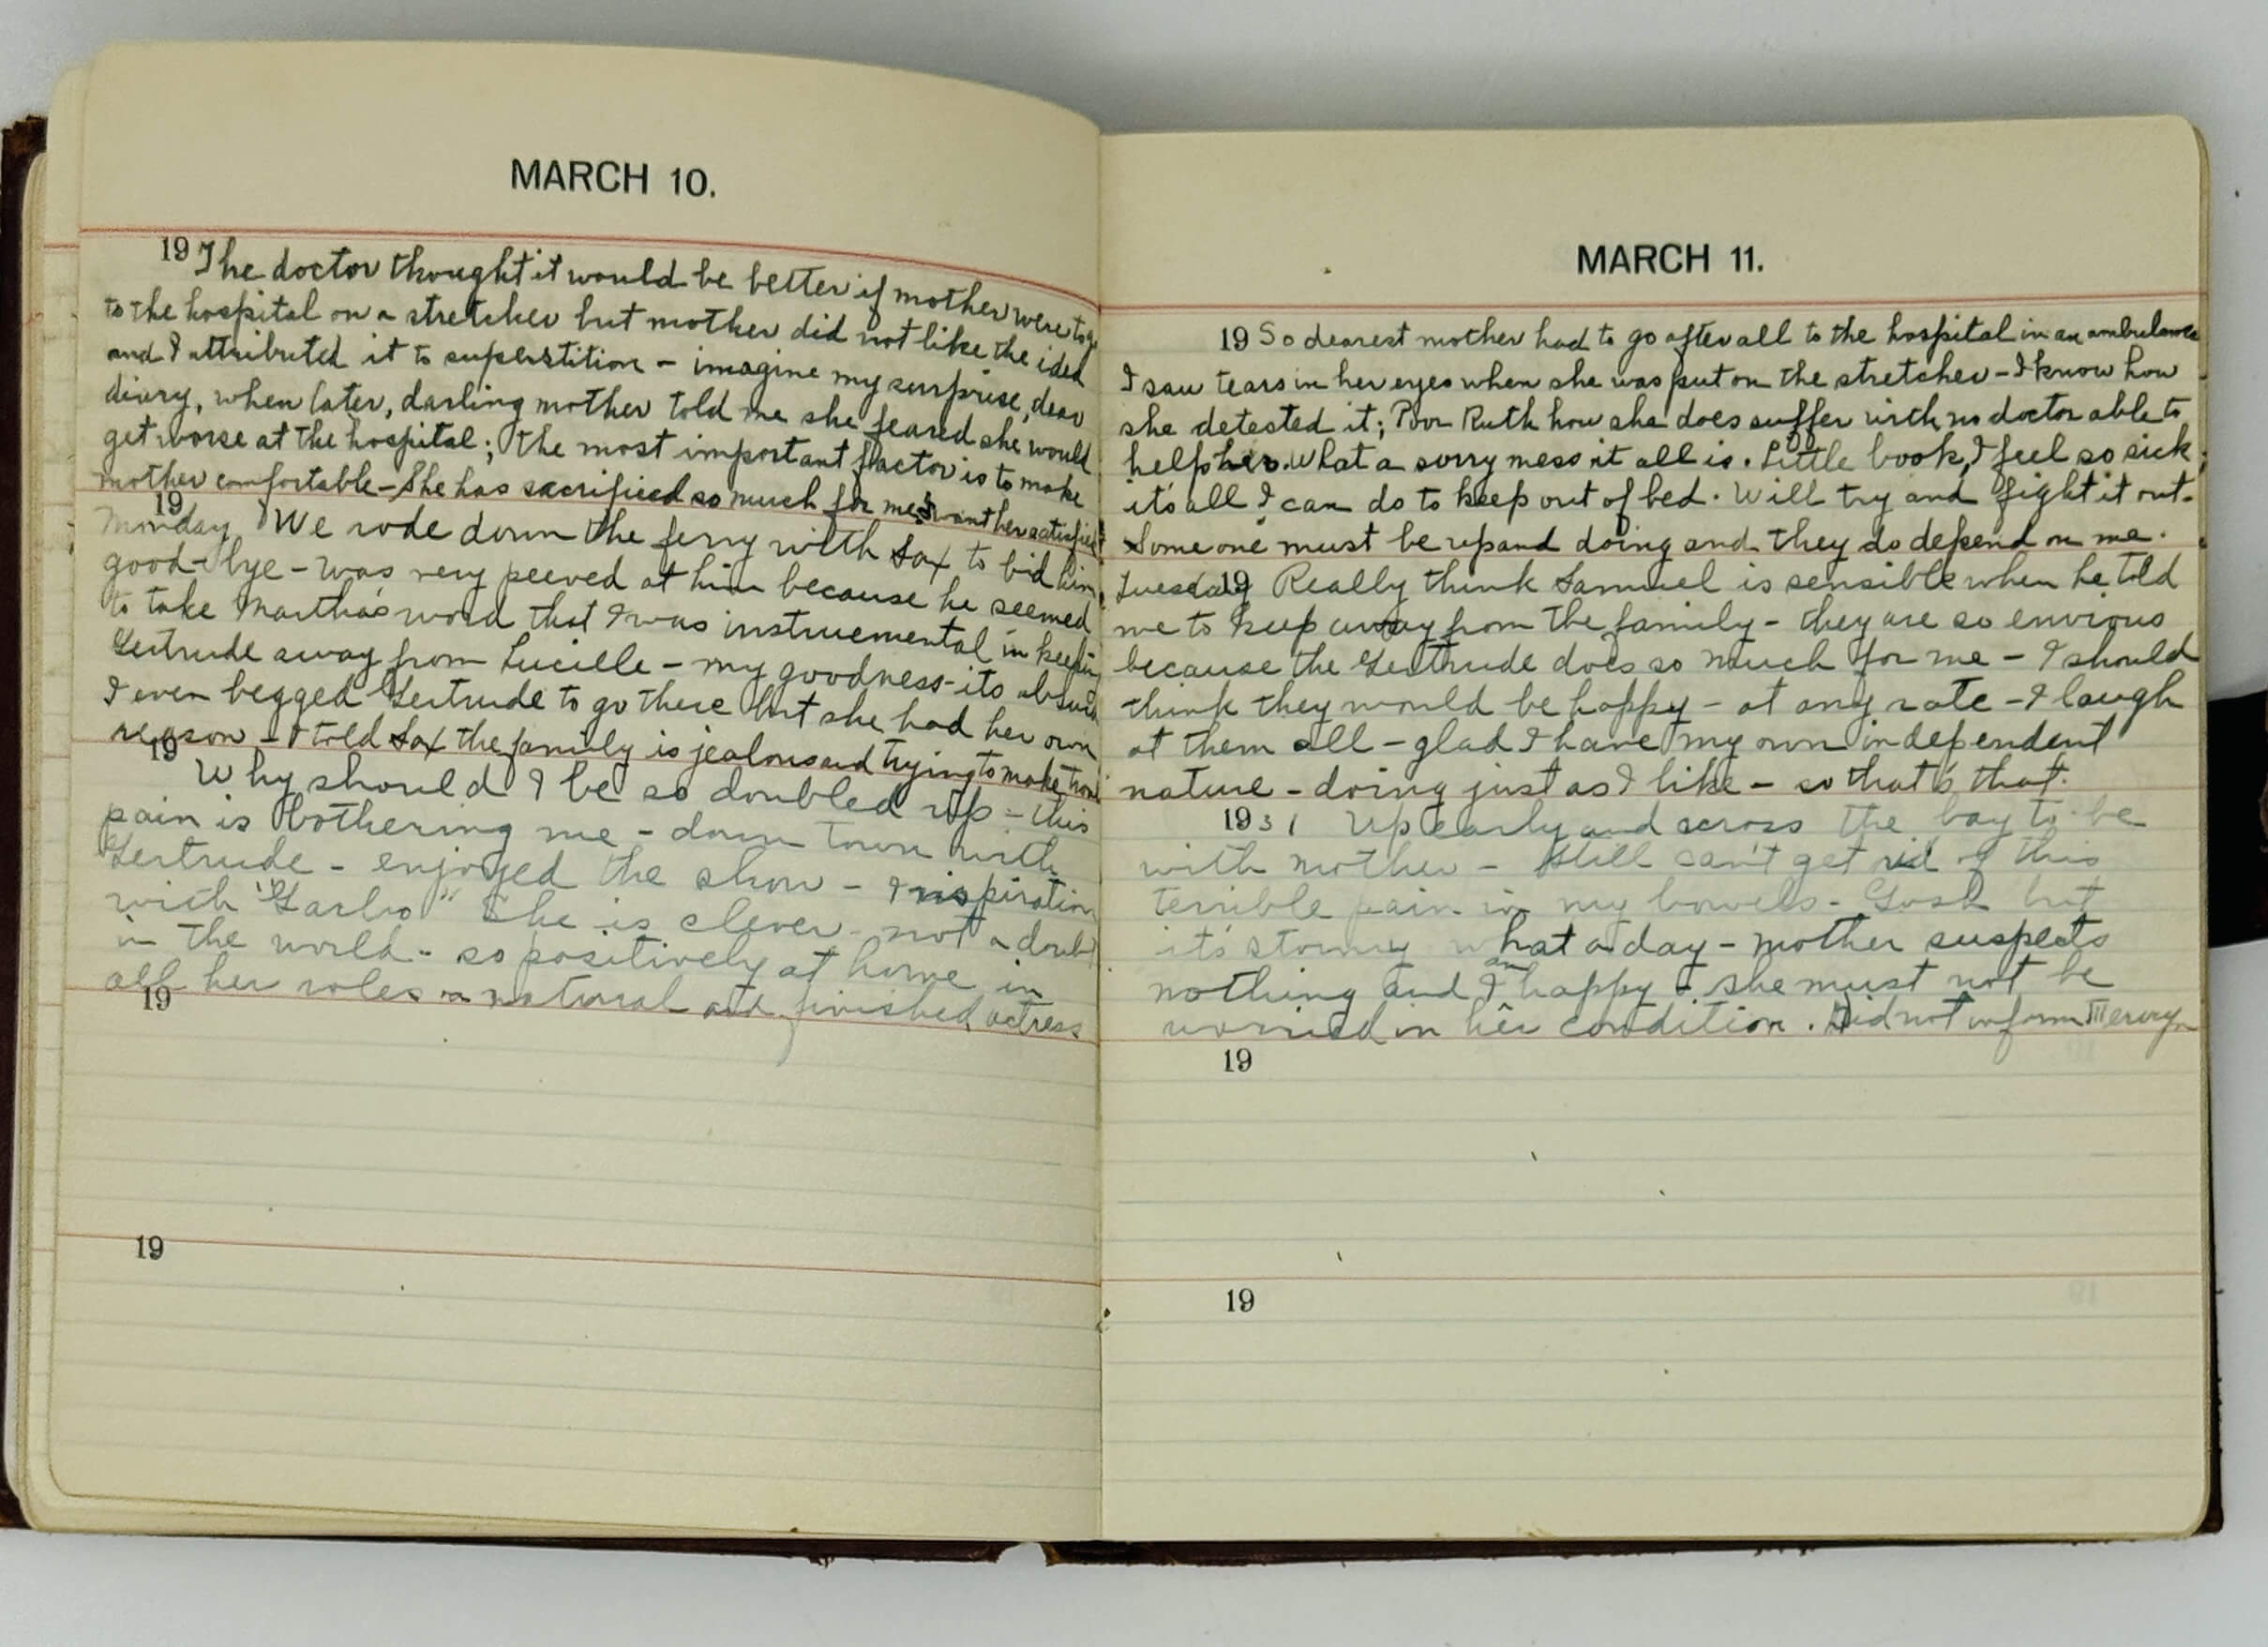 MARCH 10.
19 The doctor thought it would be better if mother were to go
to the hospital on a stretcher but mother did not like the idea
and I attributed it to superstition - imagine my surprise, dear
diary, when later, darling mother told me she feared she would
get worse at the hospital; The most important factor is to make
mother comfortable - She has sacrificed so much for me want her satisfied
19
Monday We rode down the ferry with Sax to bid him
good-bye - was very peeved at him because he seemed
to take Martha's word that I was instruemental in keeping
Gertrude away from Lucille - my goodness - its absurd
I even begged Gertrude to go there but she had her own
reason - I told Sax the family is jealous and trying to make
19
Why should I be so doubled up - this
pain is bothering me - down town with
Gertrude - enjoyed the show - Inspiration
with "Garbo" She is clever - not a doubt
in the world - so positively at home in
all her roles - a natural and finished actress
19
19
MARCH 11.
19 So dearest mother had to go after all to the hospital in an ambulance
I saw tears in her eyes when she was put on the stretcher - I know how
she detested it; Poor Ruth how she does suffer with no doctor able to
help her. What a sorry mess it all is. Little book, I feel so sick;
it's all I can do to keep out of bed. Will try and fight it out.
Someone must be up and doing and they do depend on me.
Tuesday 19 Really think Samuel is sensible when he told
me to keep away from the family - they are so envious
because the Gertrude does so much for me - I should
think they would be happy - at any rate - I laugh
at them all - glad I have my own independent
nature - doing just as I like - so that's that.
1931 Up early and across the bay to be
with mother - Still can't get rid of this
terrible pain in my bowels - Gosh but
it's stormy what a day - mother suspects
nothing and I am happy - she must not be
worried in her condition. Did not inform
19
19